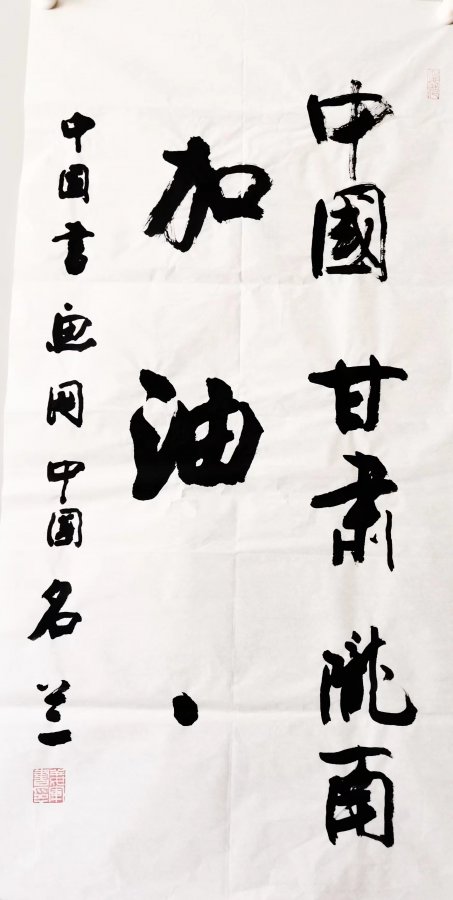 中國甘肃陇南
加油.
中国书画网中国名兰